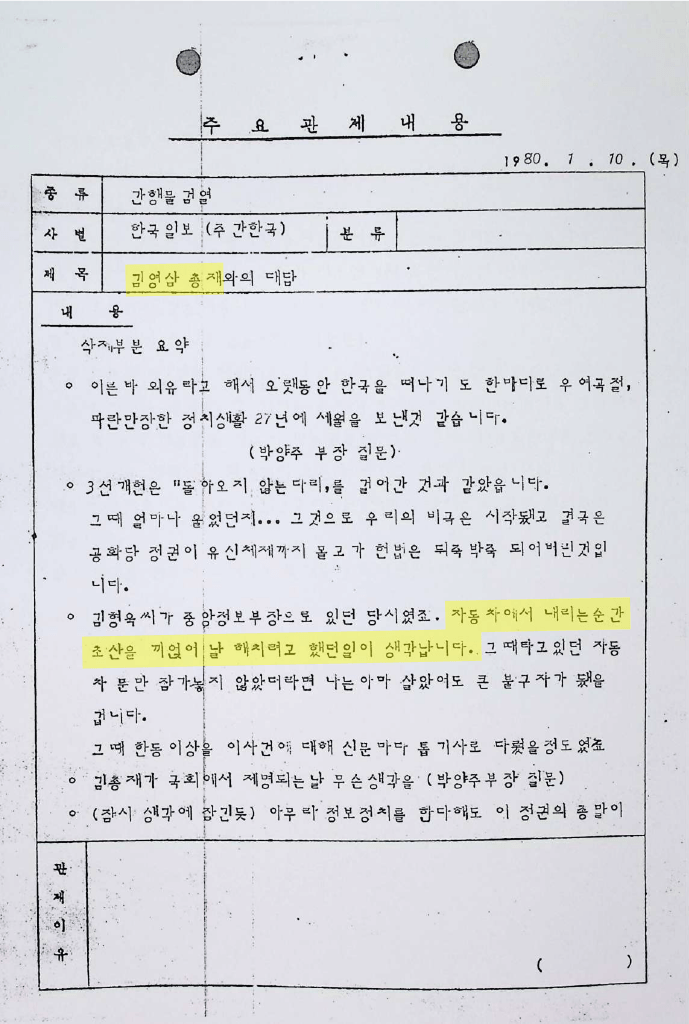 주 요 관 제 내 용
1980. 1. 10. (목)
종 류 간행물 검열
사 별 한국일보 (주간한국) 분 류
제 목 김영삼 총재와의 대담
내 용
삭제부분 요약
o 이른바 외유라고 해서 오랫동안 한국을 떠나기도 한마디로 우여곡절,
파란만장한 정치생활 27년에 세월을 보낸것 같습니다.
(박양주 부장 질문)
o 3선개헌은 "돌아오지 않는다리,를 걸어간 것과 같았읍니다.
그때 얼마나 울었던지... 그것으로 우리의 비극은 시작됐고 결국은
공화당 정권이 유신체제까지 몰고가 헌법은 뒤죽박죽 되어버린것입
니다.
o 김형욱씨가 중앙정보부장으로 있던 당시였죠. 자동차에서 내리는순간
초산을 끼얹어 날 해치려고 했던일이 생각납니다. 그때타고있던 자동
차 문만 잠가놓지 않았더라면 나는아마 살았어도 큰 불구자가 됐을
겁니다.
그때 한동이상을 이사건에 대해 신문마다 톱기사로 다뤘을정도였죠
o 김총재가 국회에서 제명되는날 무슨생각을 (박양주부장 질문)
o (잠시 생각에 잠긴듯) 아무리 정보정치를 한다해도 이 정권의 종말이
관
제
이
유
( )